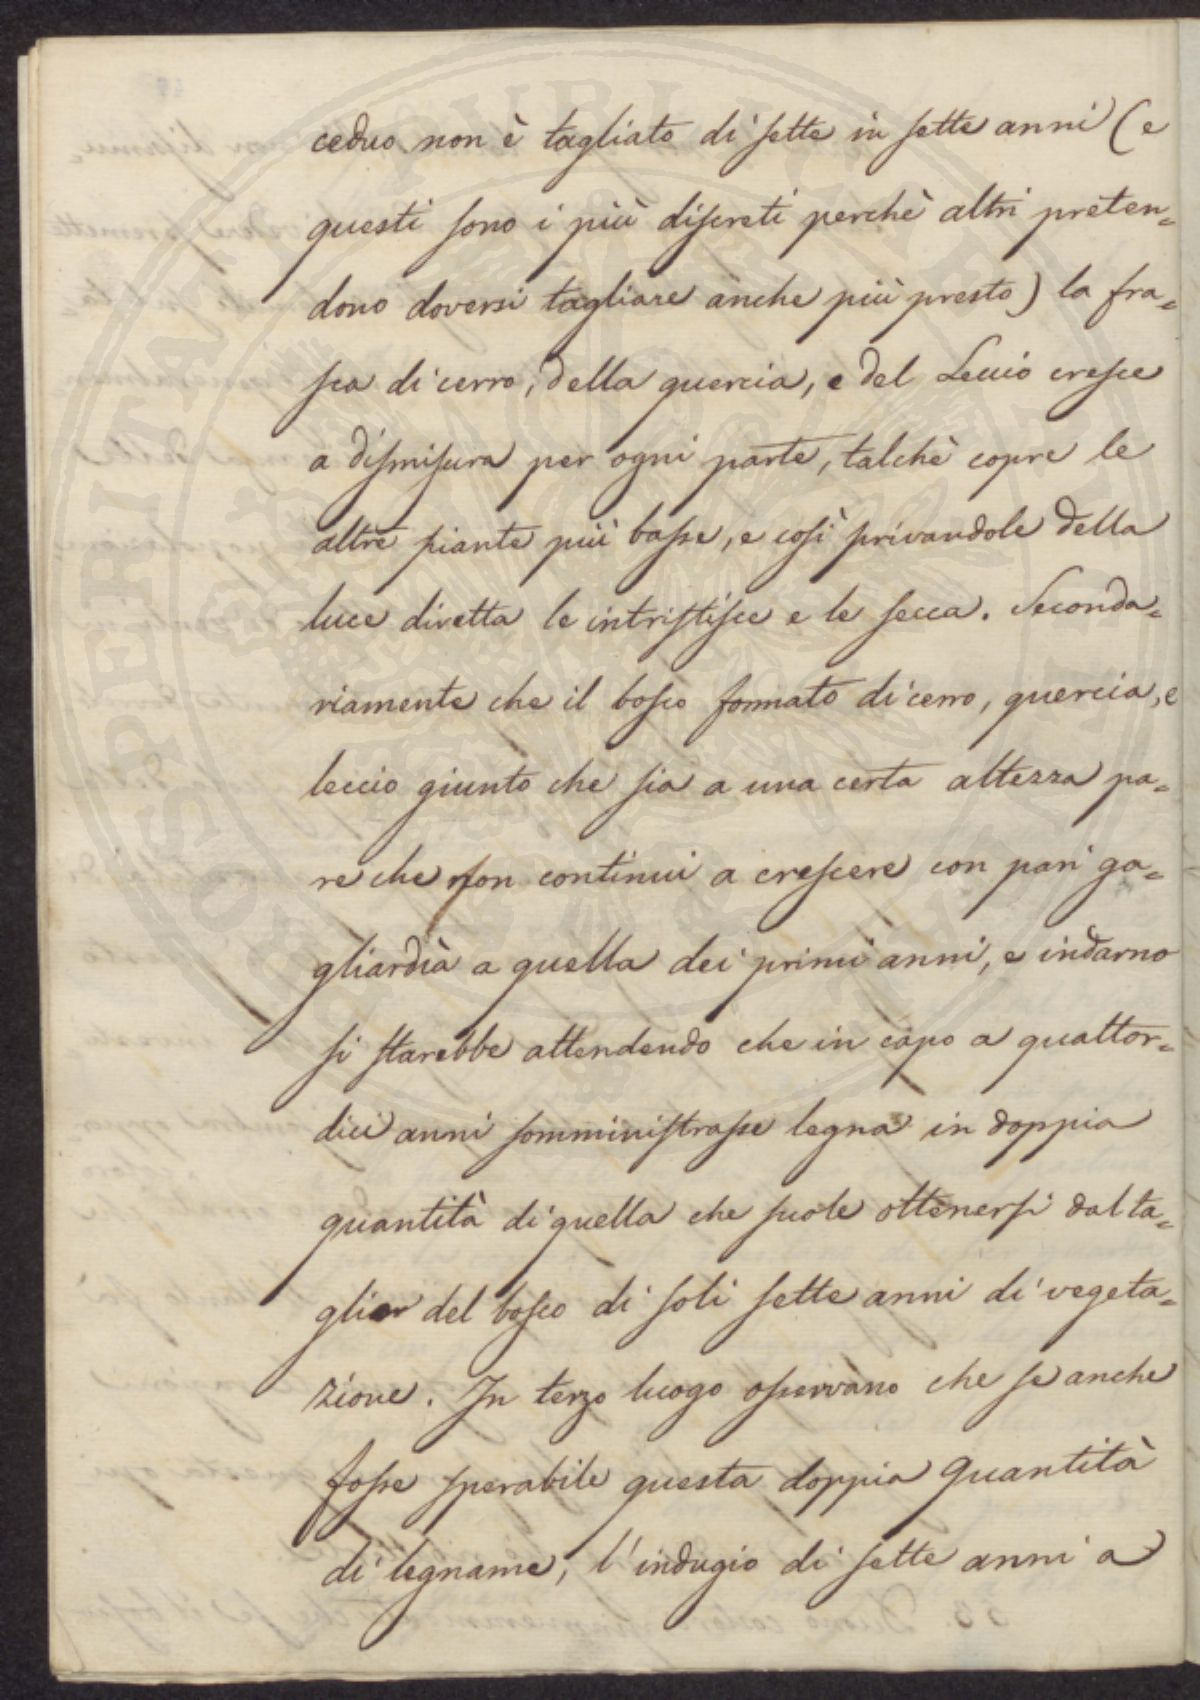 ceduo non è tagliato di sette in sette anni (e
questi sono i più discreti perchè altri preten=
dono doversi tagliare anche più presto) la fra=
sca di cerro, della quercia, e del Leccio cresce
a dismisura per ogni parte, talchè copre le
altre piante più basse, e così privandole della
luce diretta le intristisce e le secca. Seconda=
riamente che il bosco formato di cerro, quercia, e
leccio giunto che sia a una certa altezza pa=
re che non continui a crescere con pari ga=
gliardìa a quella dei primi anni, e indarno
si starebbe attendendo che in capo a quattor=
dici anni somministrasse legna in doppia
quantità di quella che suole ottenersi dal ta=
glio del bosco di soli sette anni di vegeta=
zione. In terzo luogo osservano che se anche
fosse sperabile questa doppia quantità
di legname, l'indugio di sette anni a